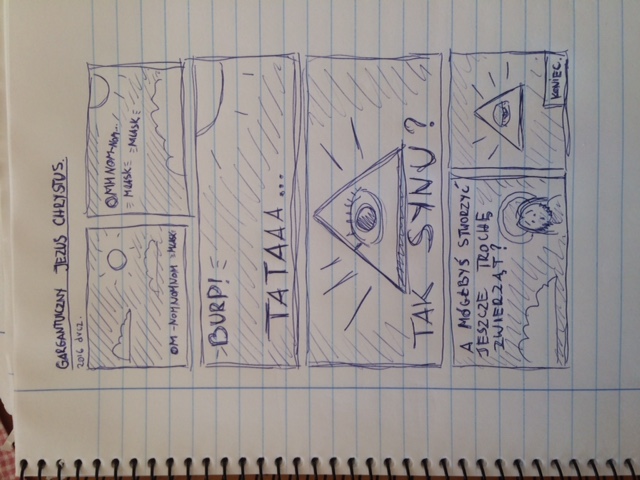 GARGANTUICZNY JEZUS CHRYSTUS.
2016 drcz.
OM-NOMNOMNOM MLASK
OMM NOM-NOM...
MLASK MLASK
BURP!
TATAAA...
TAK SYNU?
A MÓGŁBYŚ STWORZYĆ
JESZCZE TROCHĘ
ZWIERZĄT?
KONIEC.